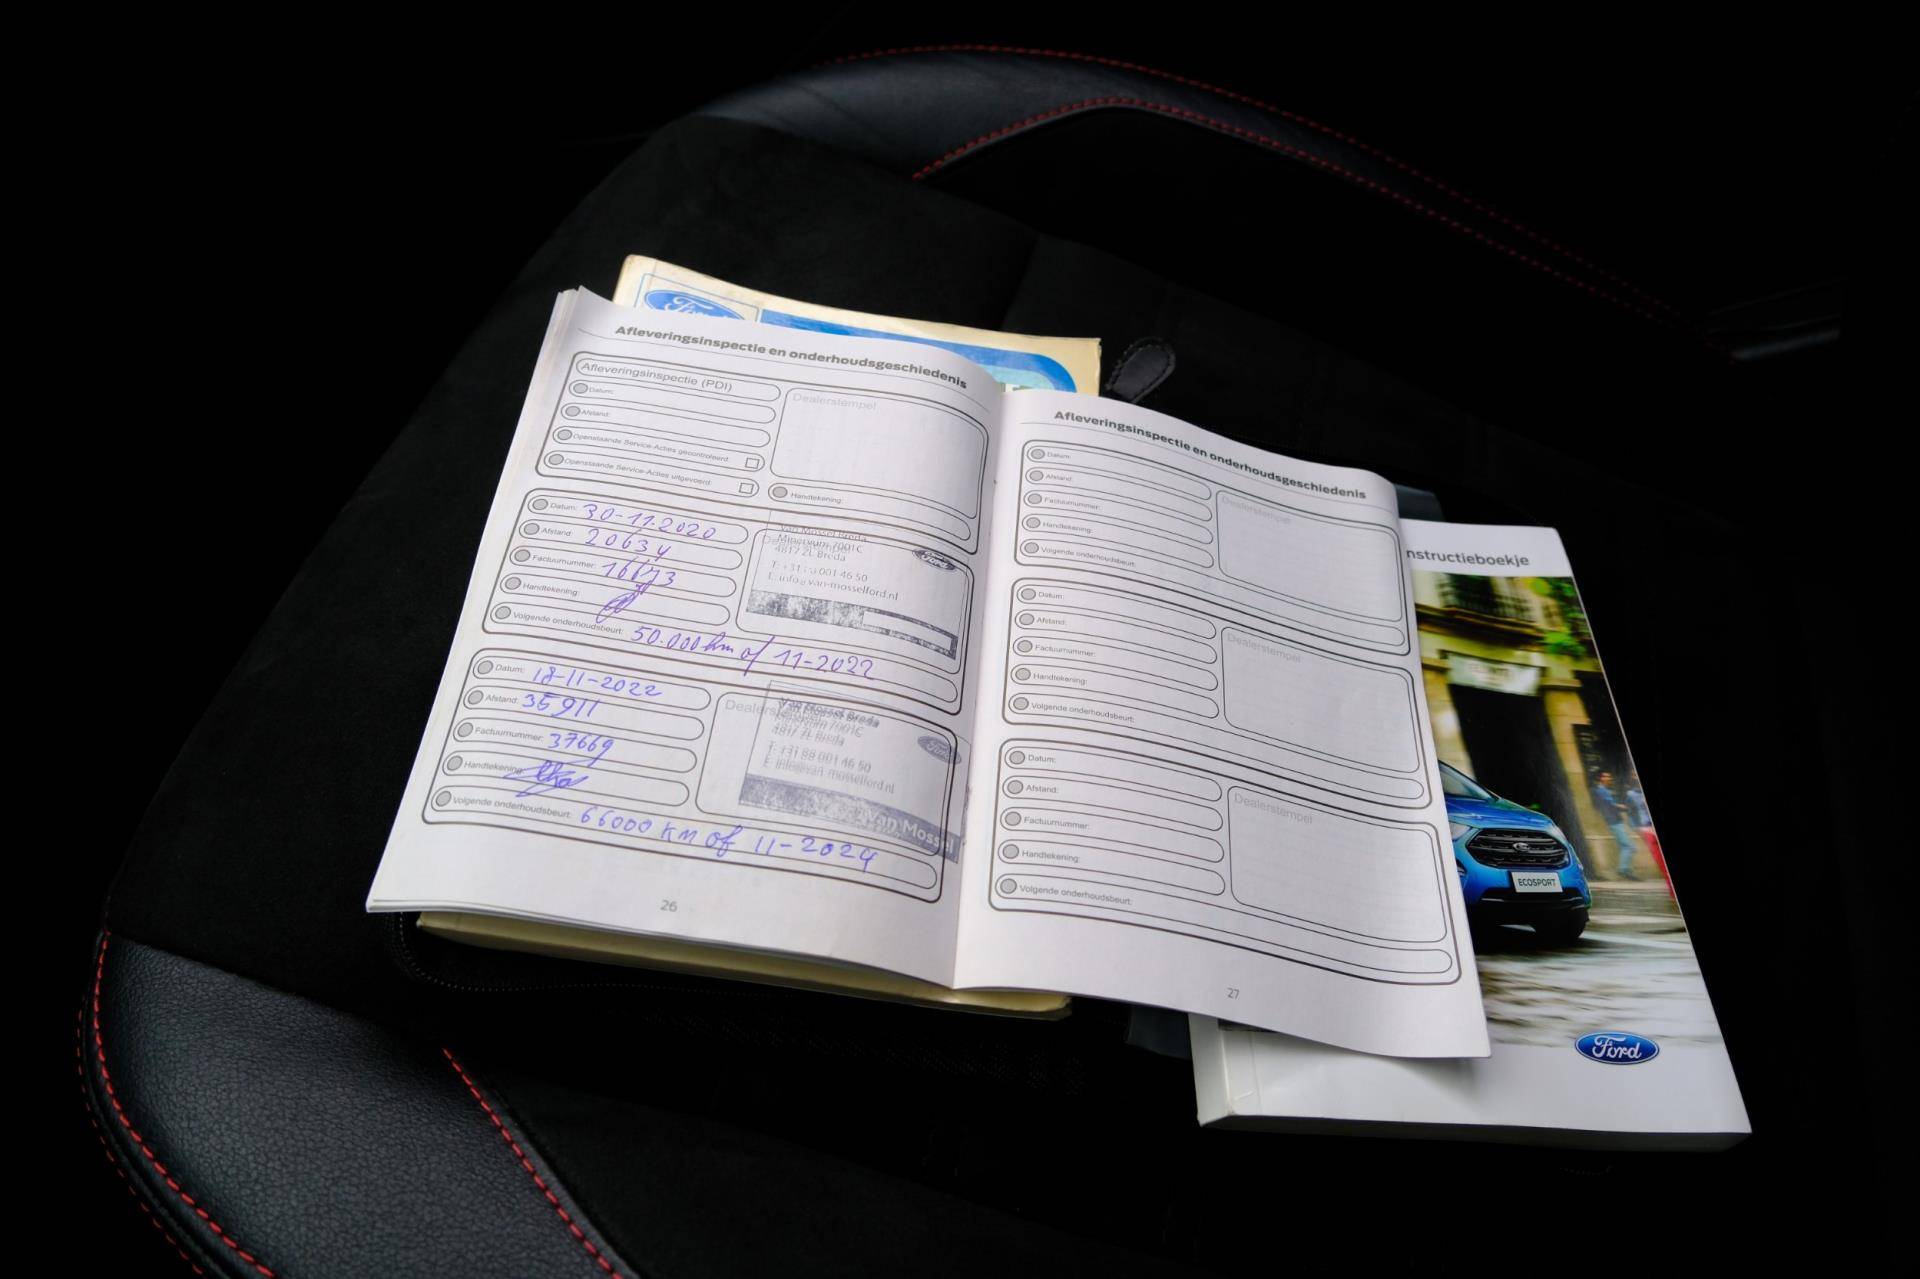 Ford
Afleveringsinspectie en onderhoudsgeschiedenis
Afleveringsinspectie (PDI)
Datum:
Afstand:
Openstaande Service-Acties gecontroleerd:
Openstaande Service-Acties uitgevoerd:
Dealerstempel
Handtekening:
Datum: 30-11-2020
Afstand: 20634
Factuurnummer:
Handtekening:
Volgende onderhoudsbeurt: 50.000 km of 11-2022
Van Mossel Breda
Minervum 7001C
4817 ZL Breda
T: +31 88 001 46 50
E: info@van-mosselford.nl
Ford
Datum: 18-11-2022
Afstand: 35911
Factuurnummer: 37669
Handtekening:
Volgende onderhoudsbeurt: 66000 km of 11-2024
Van Mossel Breda
Minervum 7001C
4817 ZL Breda
T: +31 88 001 46 50
E: info@van-mosselford.nl
Ford
Van Mossel
26
Afleveringsinspectie en onderhoudsgeschiedenis
Datum:
Afstand:
Factuurnummer:
Handtekening:
Volgende onderhoudsbeurt:
Dealerstempel
Datum:
Afstand:
Factuurnummer:
Handtekening:
Volgende onderhoudsbeurt:
Dealerstempel
Datum:
Afstand:
Factuurnummer:
Handtekening:
Volgende onderhoudsbeurt:
Dealerstempel
27
nstructieboekje
ECOSPORT
Ford